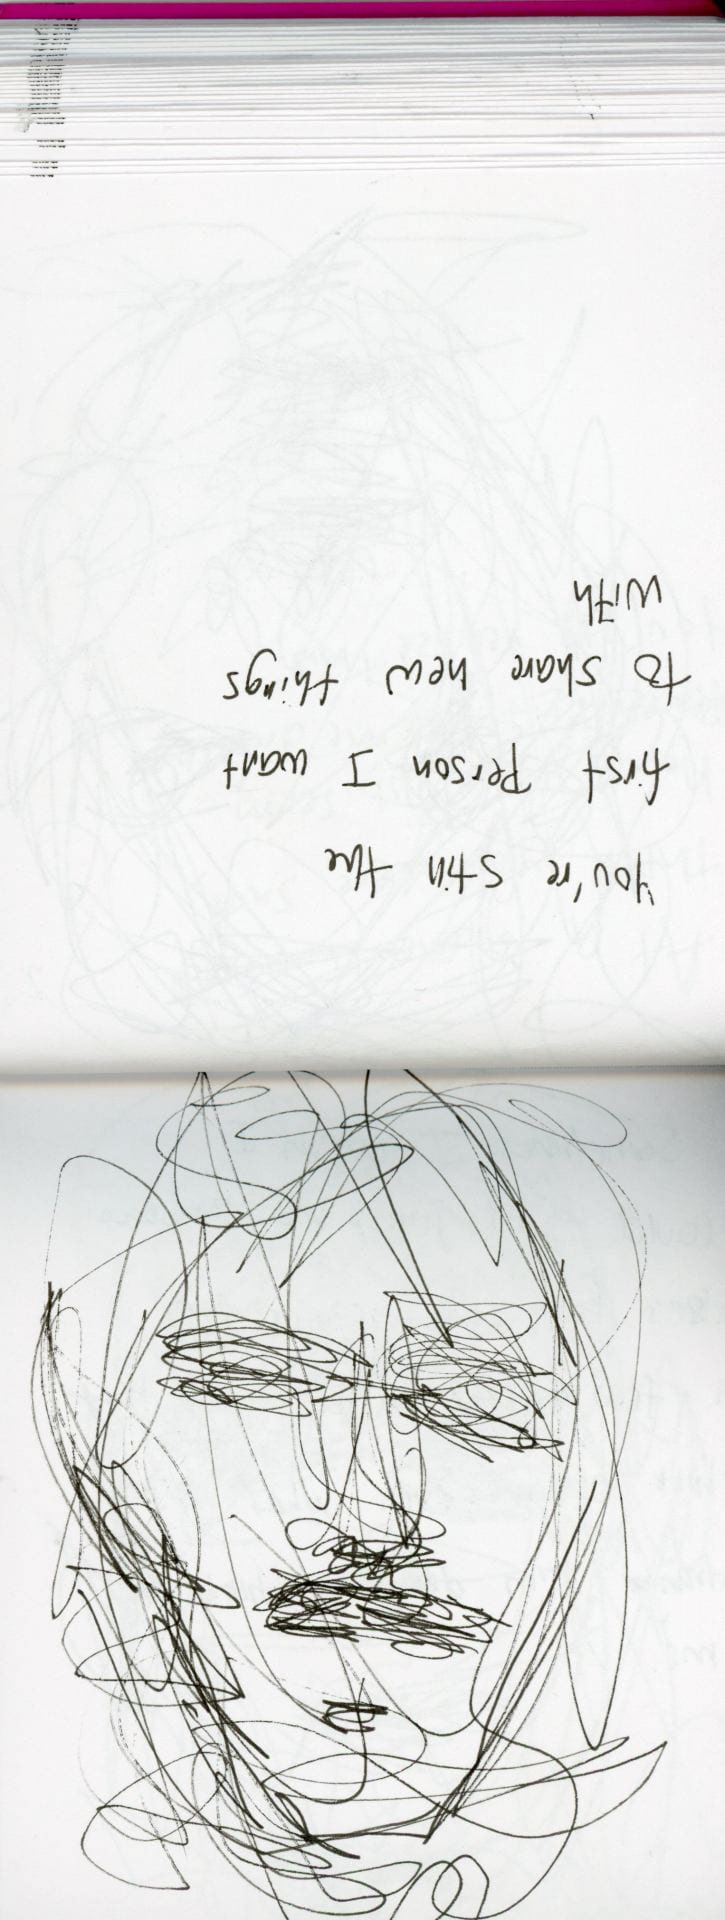 you're still the
first person I want
to share new things
with